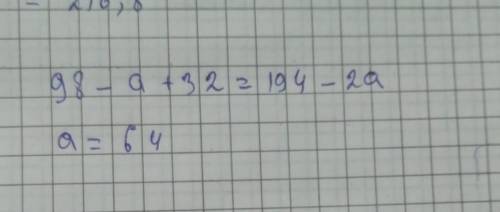 98 - a + 32 = 194 - 2a
a = 64